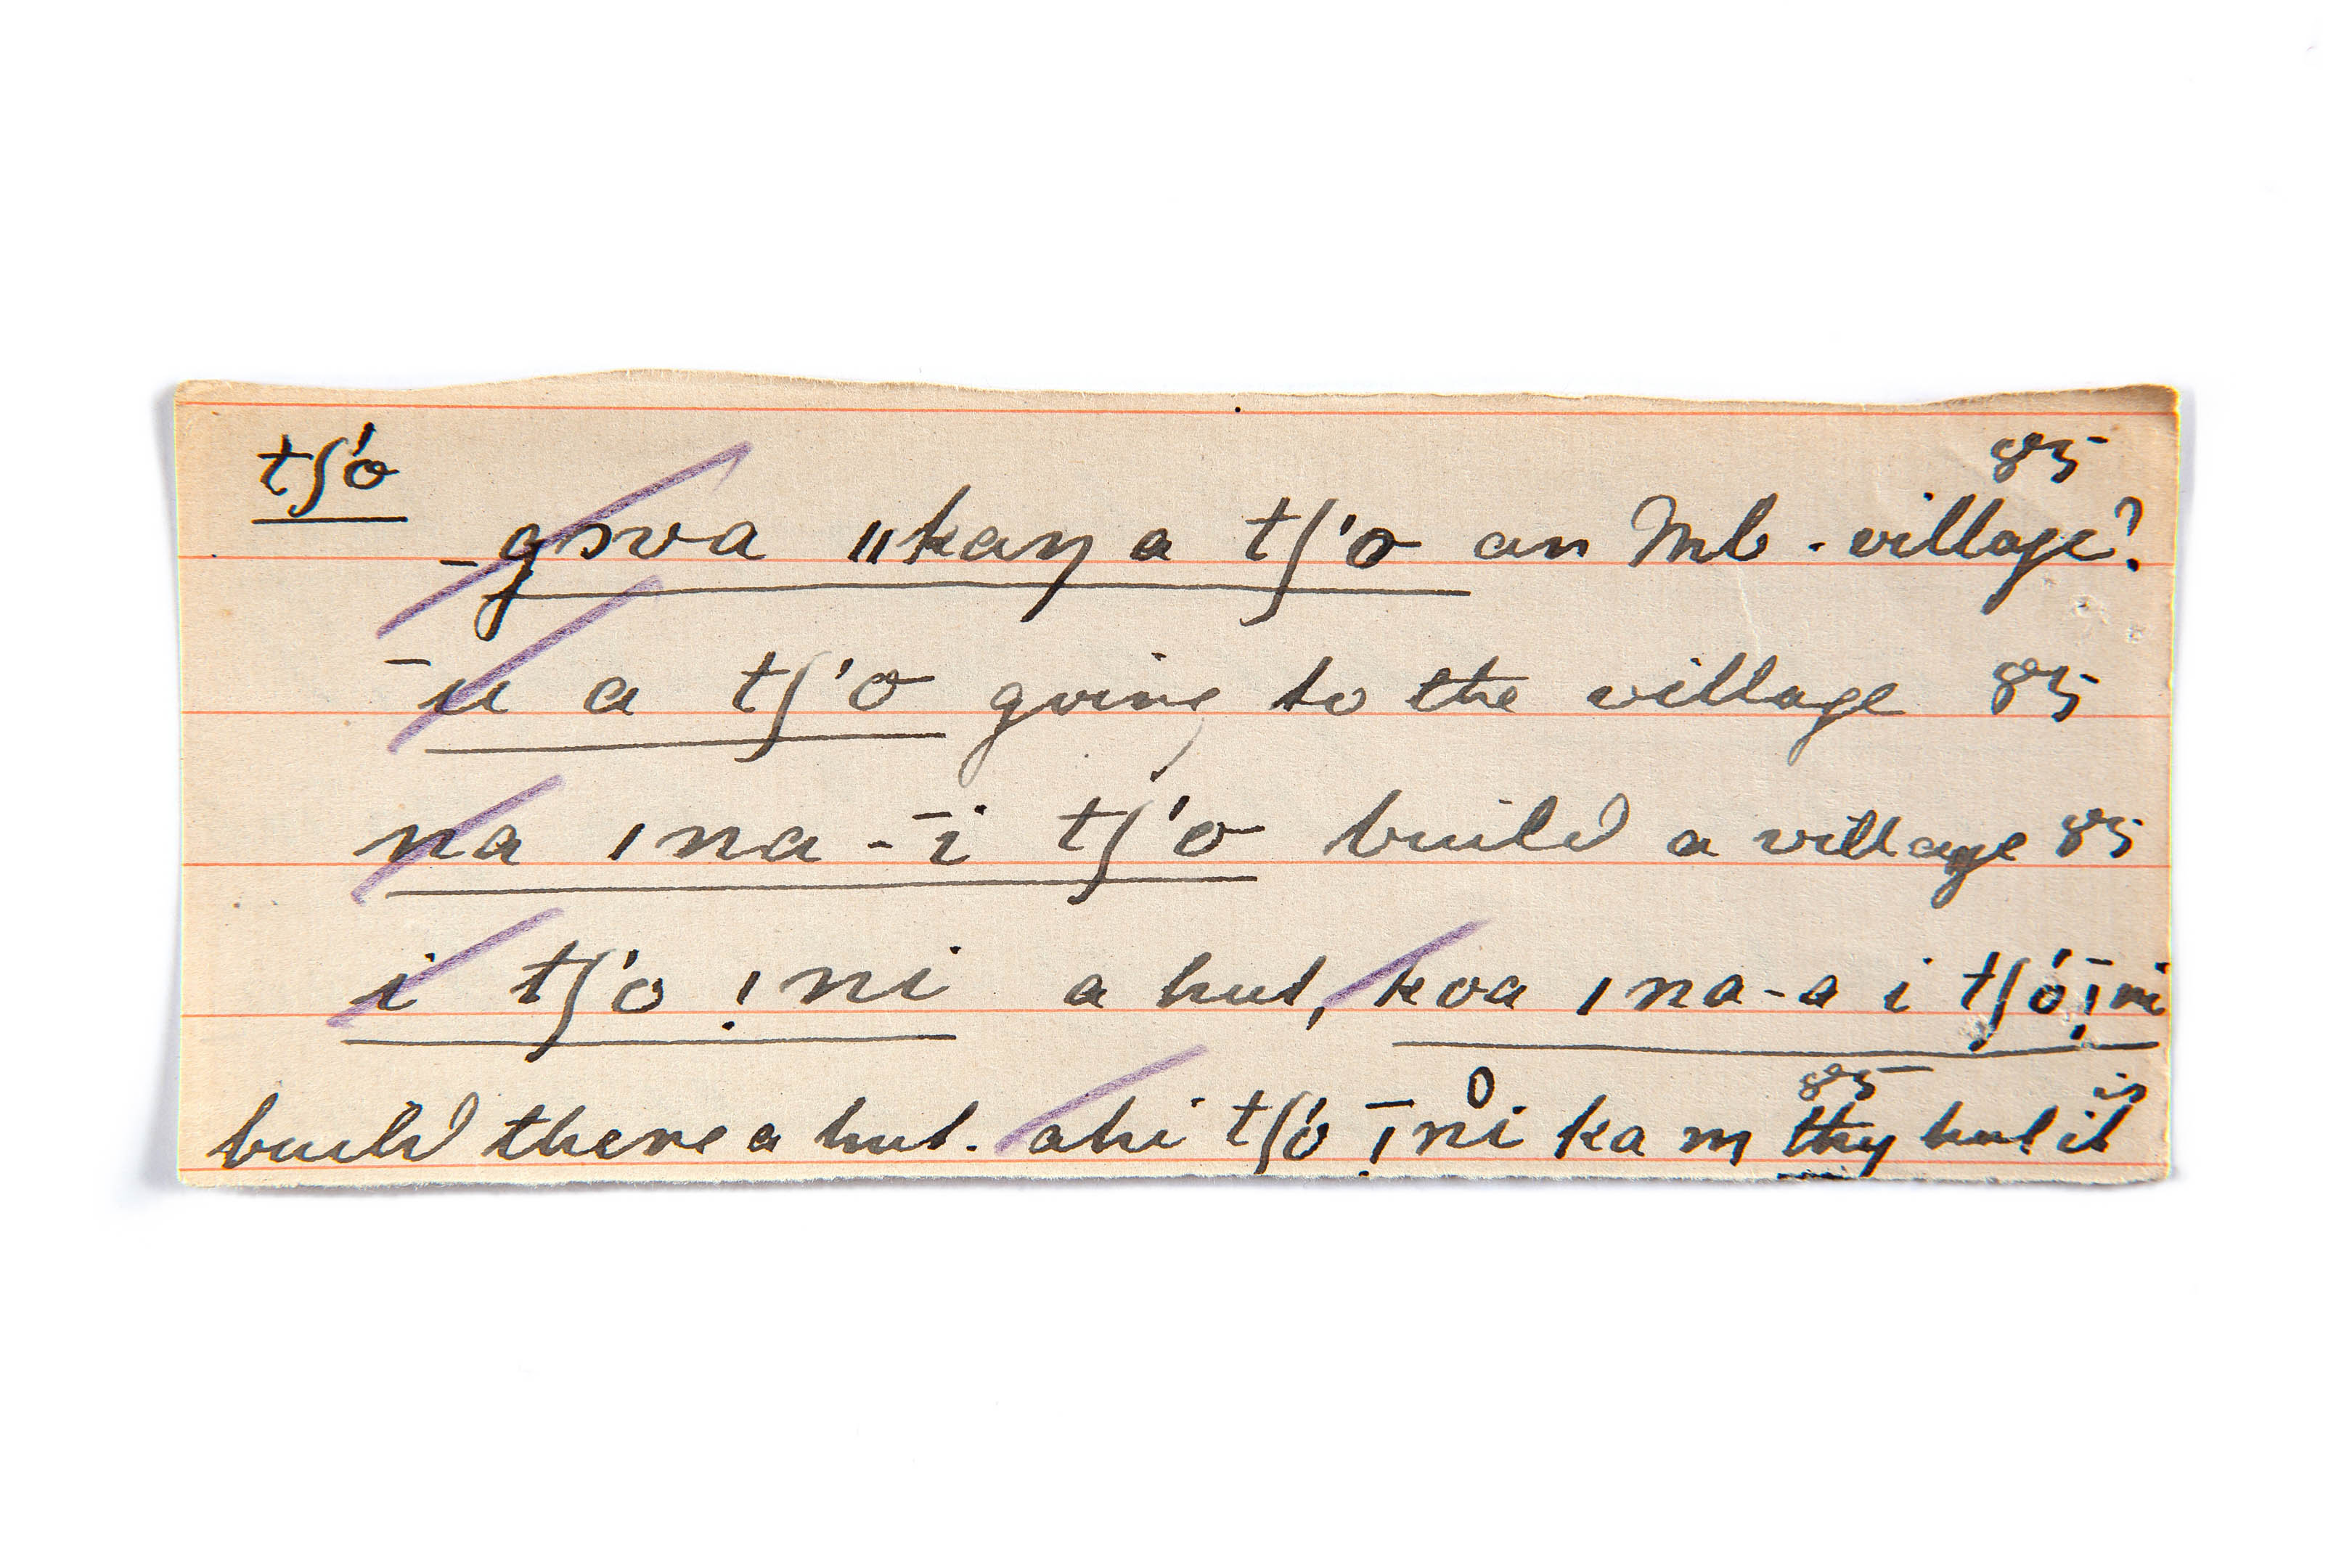 tʃ'o 85
_gɔva ǁkaŋ a tʃ'o an Mb - village?
‾u a tʃ'o going to the village 85
na ǀna-‾i tʃ'o build a village 85
i tʃ'o !ni a hut, koa ǀna-a i tʃ'o ‾!ni
85 is
build there a hut. ahi tʃ'o ‾!ni ka m thy hut it